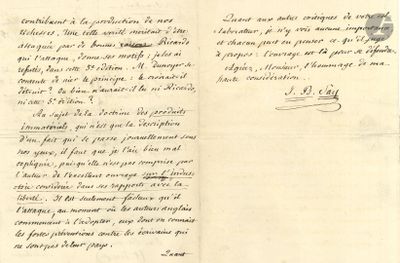 contribuent à la production de nos
richesses. Une telle vérité méritait d'être
attaquée par de bonnes raisons. Ricardo
qui l'attaque, donne ses motifs; je les ai
refutés, dans cette 5e. édition. M. Dunoyer se
contente de nier le principe: le croirait-il
détruit? Ou bien n'aurait-il lu ni Ricardo,
ni cette 5e. édition?
Au sujet de la doctrine des produits
immatériels, qui n'est que la description
d'un fait qui se passe journellement sous
nos yeux, il faut que je l'aie bien mal
expliquée, puisqu'elle n'est pas comprise par
l'auteur de l'excellent ouvrage sur l'indus-
trie considérée dans ses rapports avec la
liberté. Il est seulement facheux qu'il
l'attaque, au moment où les auteurs anglais
commencent à l'adopter, eux dont on connait
les fortes préventions contre les écrivains qui
ne sont pas de leur pays.
Quant
Quant aux autres critiques de votre col-
laborateur, je n'y vois aucune importance
et chacun peut en penser ce qu'il juge
à propos: l'ouvrage est là pour se défendre.
Agréez, Monsieur, l'hommage de ma
haute considération.
J. B. Say